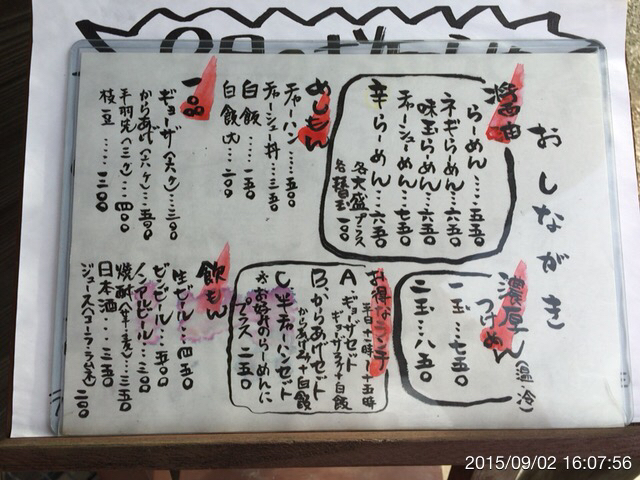 おしながき
醤油
らーめん……五五〇
ネギらーめん…六五〇
味玉らーめん…六五〇
チャーシューめん…七五〇
辛らーめん…六五〇
各大盛プラス
各替玉一〇〇
めしもん
チャーハン…五〇〇
チャーシュー丼…三五〇
白飯……一五〇
白飯大…二〇〇
一品
ギョーザ(六ヶ)…三〇〇
からあげ(六ヶ)…五〇〇
手羽先(三ヶ)…四〇〇
枝豆……二〇〇
濃厚つけめん(温・冷)
一玉…七五〇
二玉…八五〇
お得なランチ
平日十一時~十五時
A ギョーザセット
ギョーザ3ヶ+白飯
B からあげセット
からあげ3ヶ+白飯
C 半チャーハンセット
※お好みのらーめんに
プラス 二五〇
飲もん
生ビール…四五〇
ビンビール…五〇〇
ノンアルビール…三〇〇
焼酎(企・麦)…三五〇
日本酒……三五〇
ジュース(コーラ・ラムネ) 二〇〇
2015/09/02 16:07:56